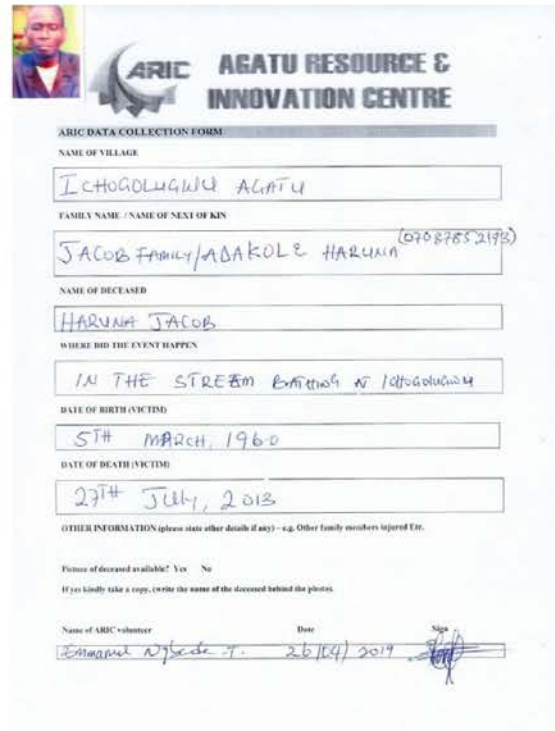 ARIC
AGATU RESOURCE &
INNOVATION CENTRE
ARIC DATA COLLECTION FORM
NAME OF VILLAGE
ICHOGOLUGWU AGATU
FAMILY NAME / NAME OF NEXT OF KIN
(07087852193)
JACOB FAMILY/ADAKOLE HARUNA
NAME OF DECEASED
HARUNA JACOB
WHERE DID THE EVENT HAPPEN
IN THE STREAM BATHING AT ICHOGOLUGWU
DATE OF BIRTH (VICTIM)
5TH MARCH, 1960
DATE OF DEATH (VICTIM)
27TH July, 2013
OTHER INFORMATION (please state other details if any) – e.g. Other family members injured Etc.
Picture of deceased available? Yes No
If yes kindly take a copy, (write the name of the deceased behind the photo).
Name of ARIC volunteer Date Sign
Emmanuel T. 26/04/2019